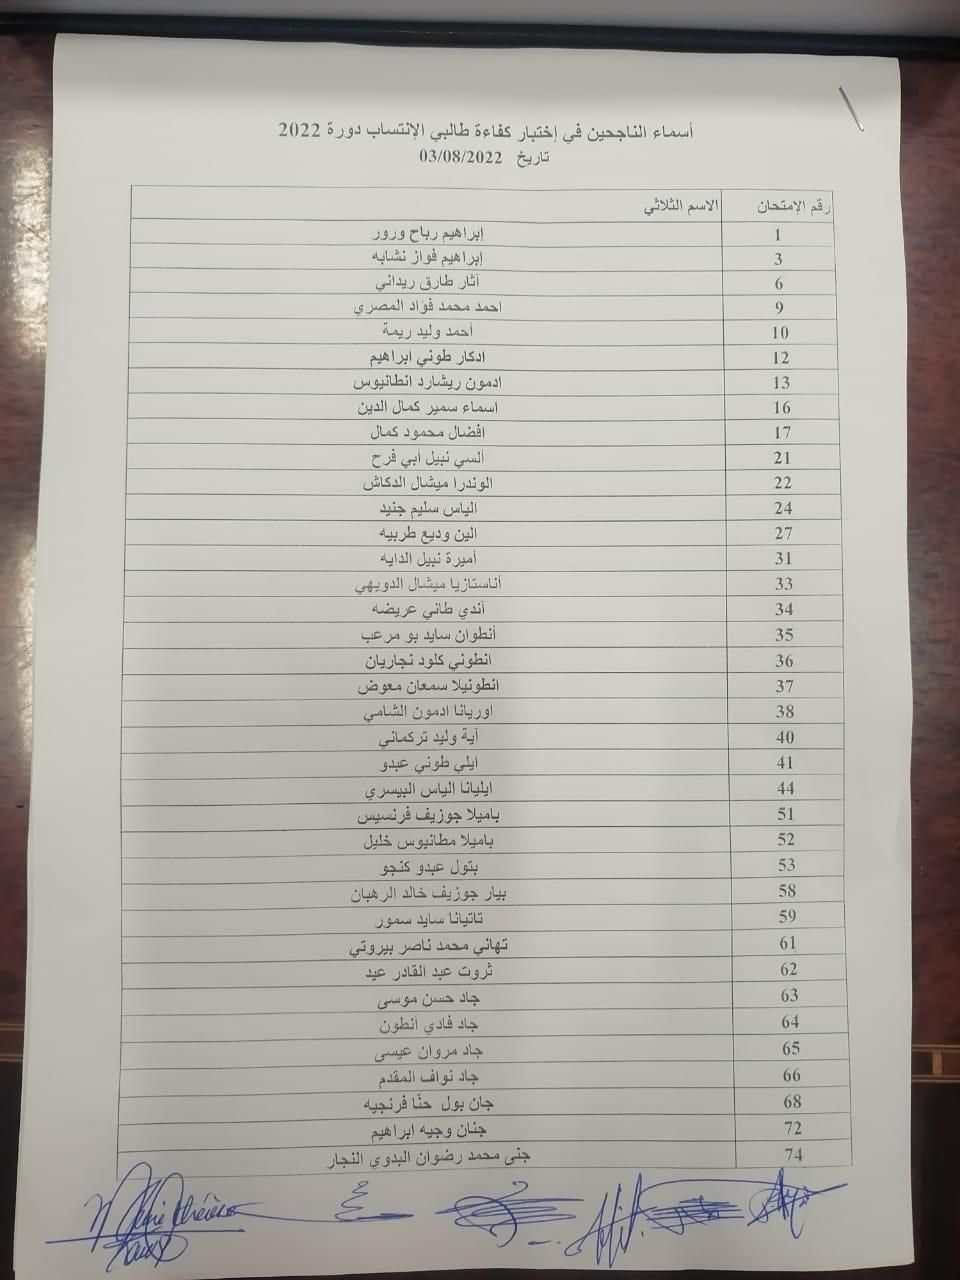 أسماء الناجحين في إختبار كفاءة طالبي الإنتساب دورة 2022
تاريخ 03/08/2022
رقم الإمتحان الاسم الثلاثي
1 إبراهيم رباح ورور
3 إبراهيم فواز نشابه
6 آثار طارق ريداني
9 احمد محمد فؤاد المصري
10 أحمد وليد ريمة
12 ادكار طوني ابراهيم
13 ادمون ريشارد انطانيوس
16 اسماء سمير كمال الدين
17 افضال محمود كمال
21 ألسي نبيل أبي فرح
22 الوندرا ميشال الدكاش
24 الياس سليم جنيد
27 الين وديع طربيه
31 أميرة نبيل الدايه
33 أناستازيا ميشال الدويهي
34 آندي طاني عريضه
35 أنطوان سايد بو مرعب
36 انطوني كلود نجاريان
37 انطونيلا سمعان معوض
38 اوريانا ادمون الشامي
40 آية وليد تركماني
41 ايلي طوني عبدو
44 ايليانا الياس البيسري
51 باميلا جوزيف فرنسيس
52 باميلا مطانيوس خليل
53 بتول عبدو كنجو
58 بيار جوزيف خالد الرهبان
59 تاتيانا سايد سمور
61 تهاني محمد ناصر بيروتي
62 ثروت عبد القادر عيد
63 جاد حسن موسى
64 جاد فادي أنطون
65 جاد مروان عيسى
66 جاد نواف المقدم
68 جان بول حنّا فرنجيه
72 جنان وجيه ابراهيم
74 جنى محمد رضوان البدوي النجار